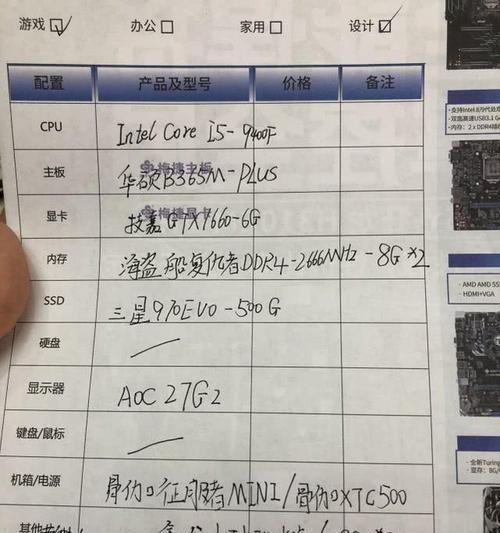 游戏 办公 家用 设计
配置 产品及型号 价格 备注
CPU Intel Core I5-9400F
主板 华硕B365M-PLUS
梅捷主板
显卡 技嘉GTX1660-6G
梅捷显卡
内存 海盗船复仇者DDR4-2666MHz-8G×2
SSD 三星970EVO-500G
硬盘
显示器 AOC 27G2
键盘/鼠标
机箱/电源 骨伽 征服者MINI/骨伽 XTC500
支持Intel 8/9代处
双面高速USB3.1 G
内存：2 x DDR4
AMD AMD S5
HDMI+VGA
全新Turing
显存：8G/